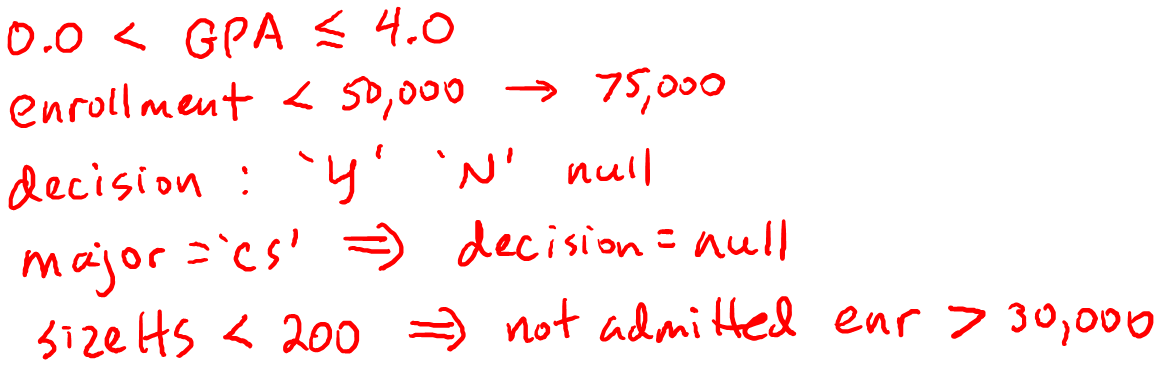 0.0 < GPA ≤ 4.0
enrollment < 50,000 → 75,000
decision : `Y' `N' null
major = `cs' ⇒ decision = null
sizeHS < 200 ⇒ not admitted enr > 30,000